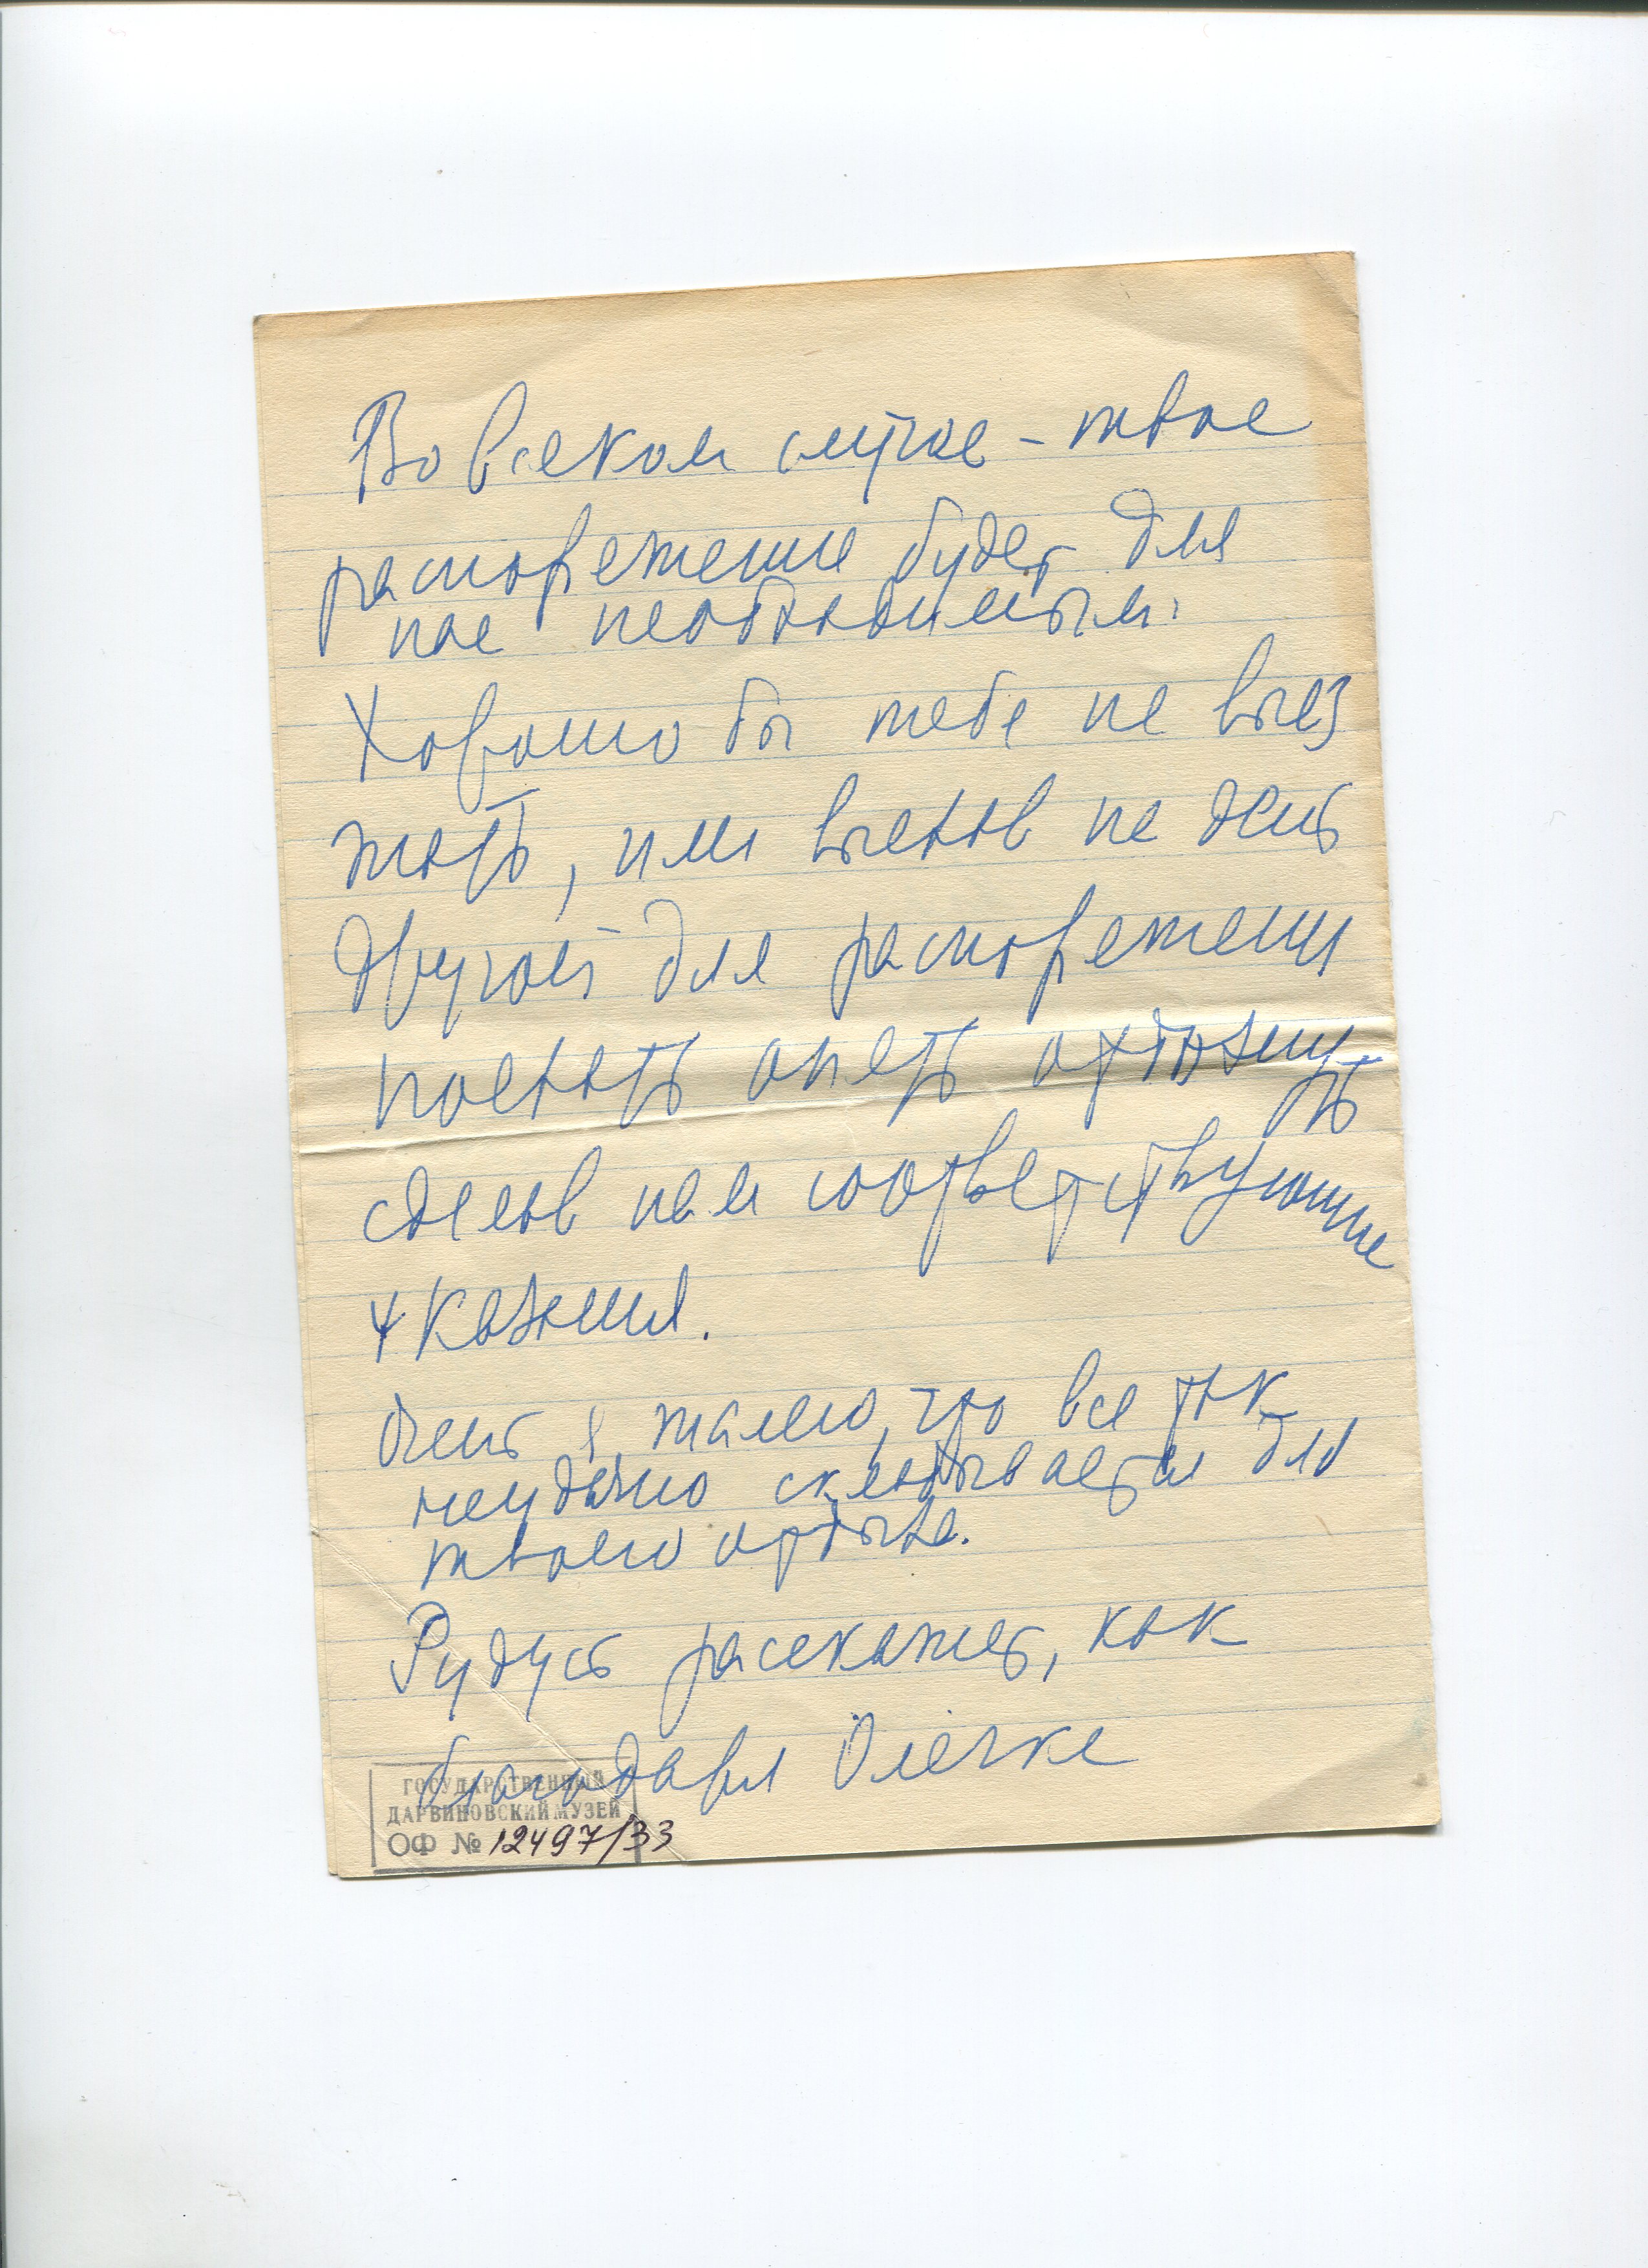 Во всяком случае – твое
распоряжение будет для
нас необходимым.
Хорошо бы тебе не выез
жать, или выехав на день
другой для распоряжений
поехать опять отдохнуть
сделав нам соответствующие
указания.
Очень я жалею, что все так
неудачно складывается для
твоего отдыха.
Рудусь расскажет, как
благодаря Олечке
ГОСУДАРСТВЕННЫЙ
ДАРВИНОВСКИЙ МУЗЕЙ
ОФ № 12497/33